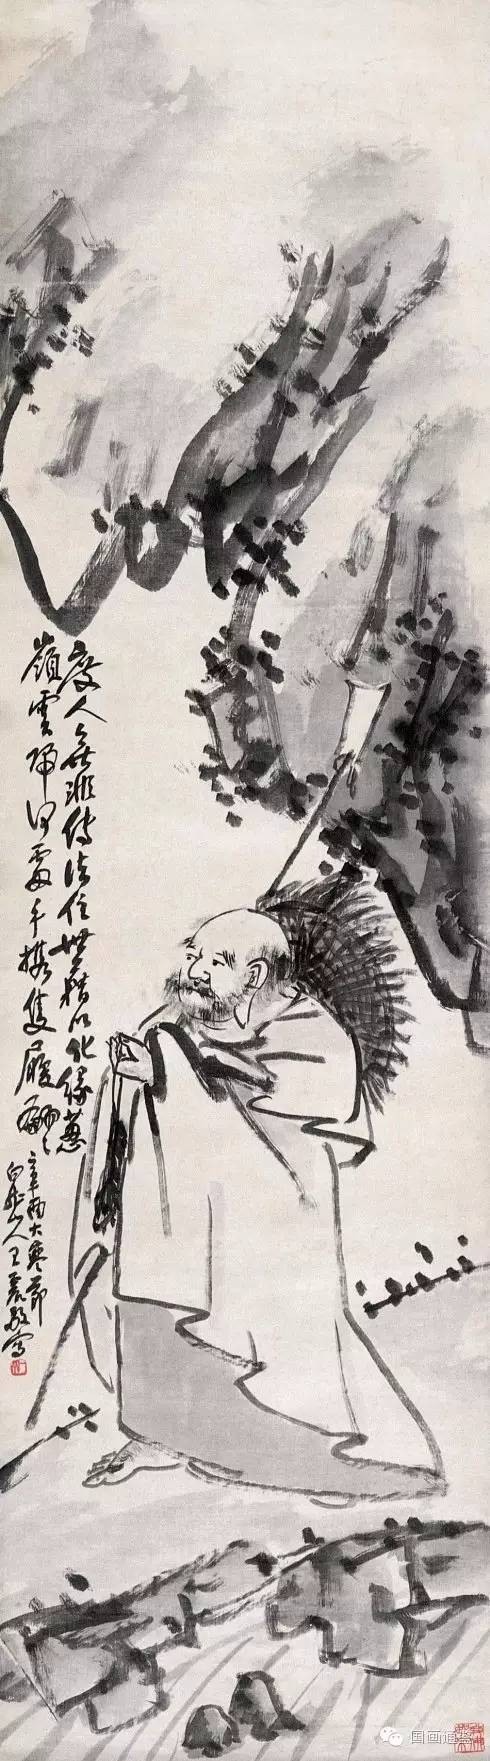 度人無非傳法住世藉以化緣蔥
嶺雲歸何處手攜隻履翩翩
辛酉大寒節
白龍山人王震敬寫
国画通鉴